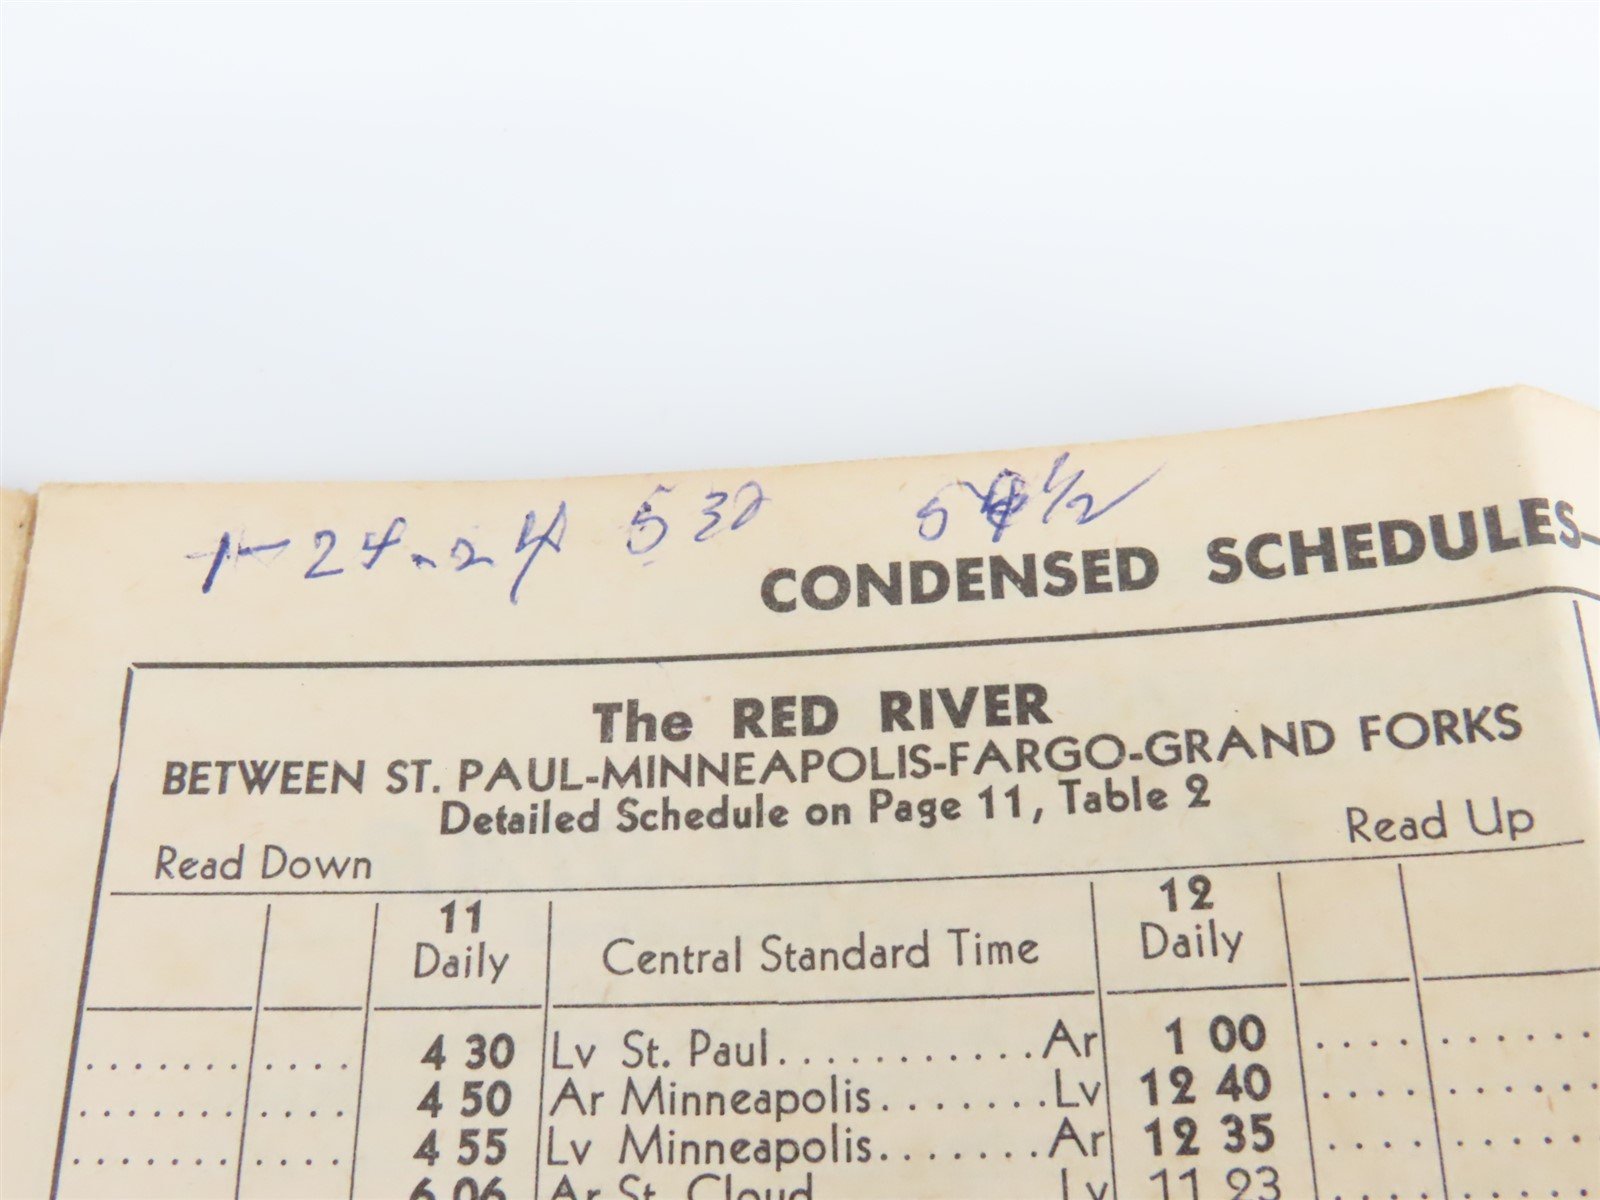 1-24-24 530 54 1/2
CONDENSED SCHEDULES
The RED RIVER
BETWEEN ST. PAUL-MINNEAPOLIS-FARGO-GRAND FORKS
Detailed Schedule on Page 11, Table 2
Read Down Read Up
11 Daily Central Standard Time 12 Daily
4 30 Lv St. Paul...........Ar 1 00
4 50 Ar Minneapolis.......Lv 12 40
4 55 Lv Minneapolis.......Ar 12 35
6 06 Ar St. Cloud Lv 11 23